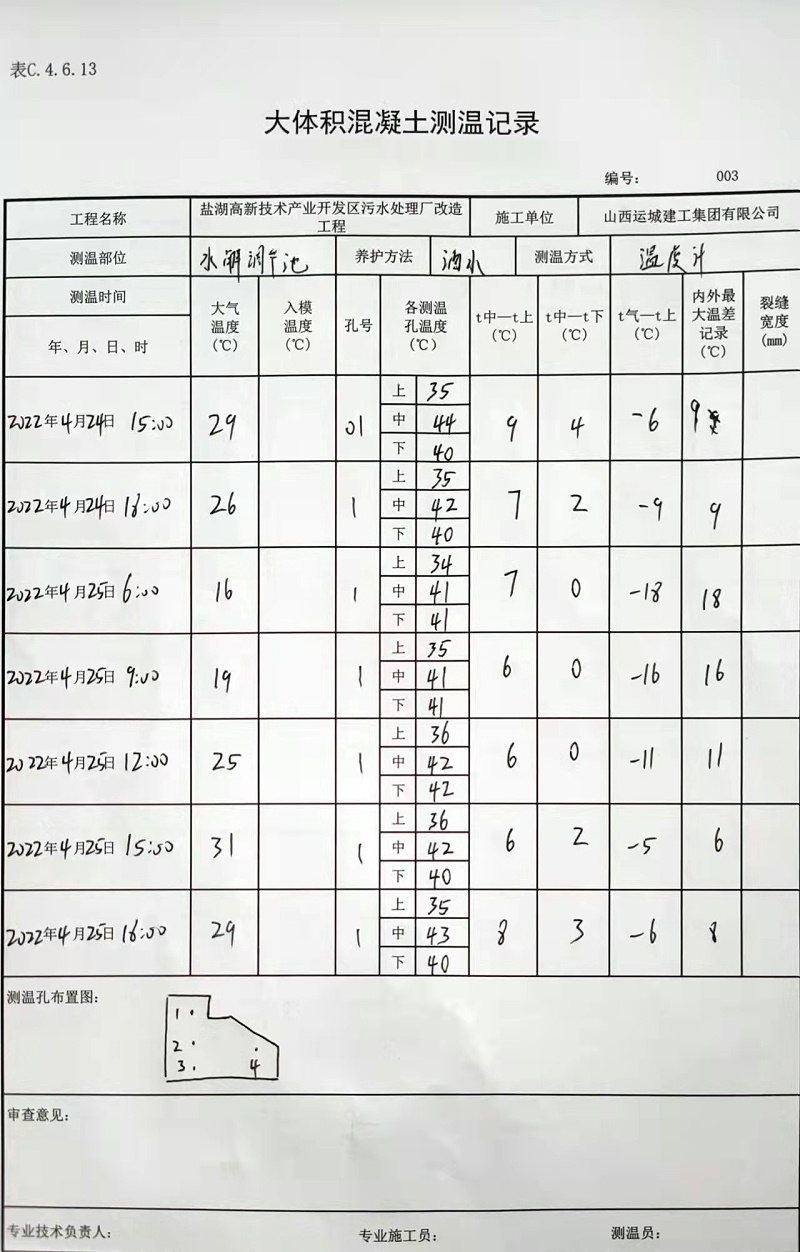 表C.4.6.13
大体积混凝土测温记录
编号： 003
工程名称 盐湖高新技术产业开发区污水处理厂改造工程 施工单位 山西运城建工集团有限公司
测温部位 水解调节池 养护方法 洒水 测温方式 温度计
测温时间 大气温度(℃) 入模温度(℃) 孔号 各测温孔温度(℃) t中—t上(℃) t中—t下(℃) t气—t上(℃) 内外最大温差记录(℃) 裂缝宽度(mm)
年、月、日、时
2022年4月24日 15:00 29 01 上 35 中 44 下 40 9 4 -6 9
2022年4月24日 18:00 26 1 上 35 中 42 下 40 7 2 -9 9
2022年4月25日 6:00 16 1 上 34 中 41 下 41 7 0 -18 18
2022年4月25日 9:00 19 1 上 35 中 41 下 41 6 0 -16 16
2022年4月25日 12:00 25 1 上 36 中 42 下 42 6 0 -11 11
2022年4月25日 15:00 31 1 上 36 中 42 下 40 6 2 -5 6
2022年4月25日 18:00 29 1 上 35 中 43 下 40 8 3 -6 8
测温孔布置图：
1
2
3 4
审查意见：
专业技术负责人： 专业施工员： 测温员：